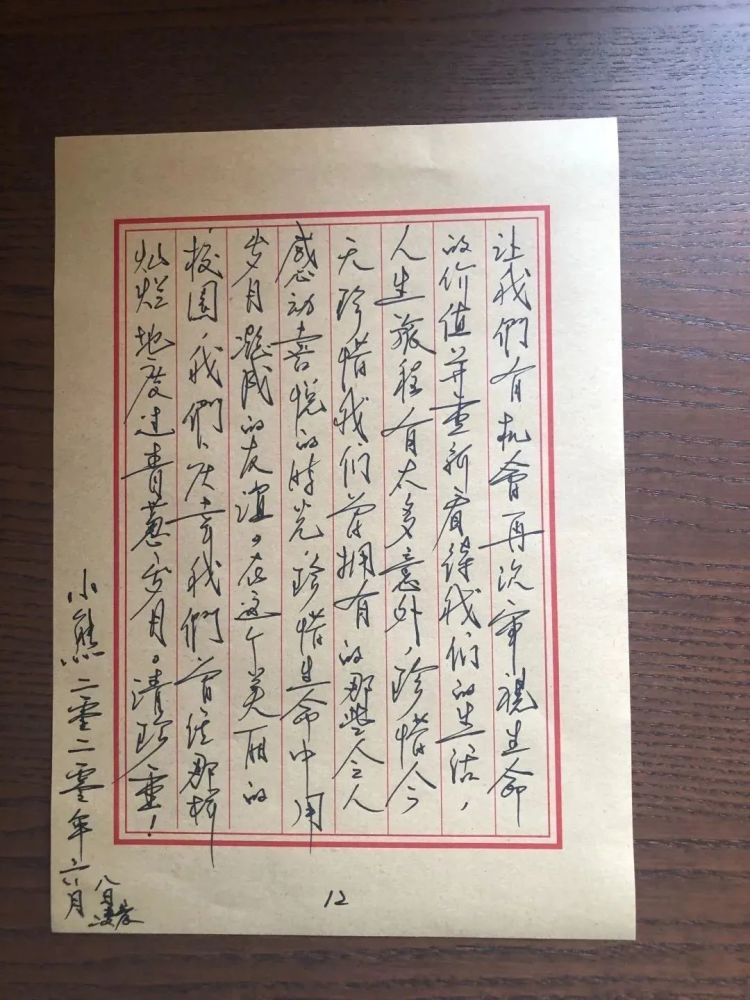 让我們有机會再次审視生命
的价值并重新看待我们的生活，
人生旅程有太多意外，珍惜今
天珍惜我们曾拥有的那些令人
感动喜悦的時光珍惜生命中用
岁月凝成的友谊。在这个美丽的
校園，我們、庆幸我們曾经那样
灿烂地度过青葱岁月。请珍重！
小熊二零二零年六月
八日凌晨
12